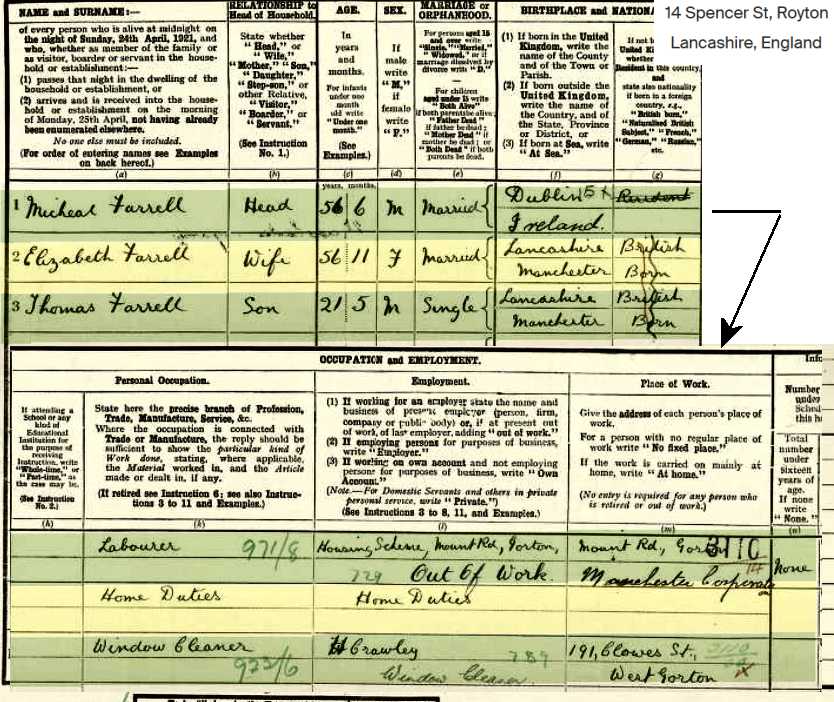 14 Spencer St, Royton
Lancashire, England
NAME and SURNAME:—
of every person who is alive at midnight on
the night of Sunday, 24th April, 1921, and
who, whether as member of the family or
as visitor, boarder or servant in the house-
hold or establishment:—
(1) passes that night in the dwelling of the
household or establishment, or
(2) arrives and is received into the house-
hold or establishment on the morning
of Monday, 25th April, not having already
been enumerated elsewhere.
No one else must be included.
(For order of entering names see Examples
on back hereof.)
(a)
RELATIONSHIP to
Head of Household.
State whether
"Head," or
"Wife,"
"Mother," "Son,"
"Daughter,"
"Step-son," or
other Relative,
"Visitor,"
"Boarder," or
"Servant."
(See Instruction
No. 1.)
(b)
AGE.
In
years
and
months.
For infants
under one
month
old write
"Under one
month."
(See
Examples.)
(c)
years, months.
SEX.
If
male
write
"M,"
if
female
write
"F."
(d)
MARRIAGE or
ORPHANHOOD.
For persons aged 15
and over write
"Single," "Married,"
"Widowed," or if
marriage dissolved by
divorce write "D."
For children
aged under 15 write
"Both Alive"
if both parents be alive;
"Father Dead"
if father be dead;
"Mother Dead" if
mother be dead; or
"Both Dead" if both
parents be dead.
(e)
BIRTHPLACE and NATIONA
(1) If born in the United
Kingdom, write the
name of the County
and of the Town or
Parish.
(2) If born outside the
United Kingdom,
write the name of
the Country, and of
the State, Province
or District, or
(3) If born at Sea, write
"At Sea."
(f)
If not b
United Ki
whether
Resident in this country,
and
state also nationality
if born in a foreign
country, e.g.,
"British born,"
"Naturalised British
Subject," "French,"
"German," "Russian,"
etc.
(g)
1 Micheal Farrell Head 56 6 M Married Dublin 5+ Resident
Ireland.
2 Elizabeth Farrell Wife 56 11 F Married Lancashire British
Manchester Born
3 Thomas Farrell Son 21 5 M Single Lancashire British
Manchester Born
OCCUPATION and EMPLOYMENT.
Personal Occupation.
If attending a
School or any
kind of
Educational
Institution for
the purpose of
receiving
instruction, write
"Whole-time," or
"Part-time," as
the case may be.
(See Instruction
No. 2.)
(h)
State here the precise branch of Profession,
Trade, Manufacture, Service, &c.
Where the occupation is connected with
Trade or Manufacture, the reply should be
sufficient to show the particular kind of
Work done, stating, where applicable,
the Material worked in, and the Article
made or dealt in, if any.
(If retired see Instruction 6; see also Instruc-
tions 3 to 11 and Examples.)
(k)
Employment.
(1) If working for an employer state the name and
business of present employer (person, firm,
company or public body) or, if at present out
of work, of last employer, adding "out of work."
(2) If employing persons for purposes of business,
write "Employer."
(3) If working on own account and not employing
persons for purposes of business, write "Own
Account."
(Note.—For Domestic Servants and others in private
personal service, write "Private.")
(See Instructions 3 to 8, 11, and Examples.)
(l)
Place of Work.
Give the address of each person's place of
work.
For a person with no regular place of
work write "No fixed place."
If the work is carried on mainly at
home, write "At home."
(No entry is required for any person who
is retired or out of work.)
(m)
Info
Number
under
Sched
this h
Total
number
under
sixteen
years of
age.
If none
write
"None."
(n)
Labourer 971/8 Housing Scheme, Mount Rd, Gorton, Mount Rd, Gorton 3110
729 Out Of Work. Manchester Corporation 14 None
Home Duties Home Duties
Window Cleaner H Crawley 789 191, Clowes St.,
923/6 Window Cleaner West Gorton